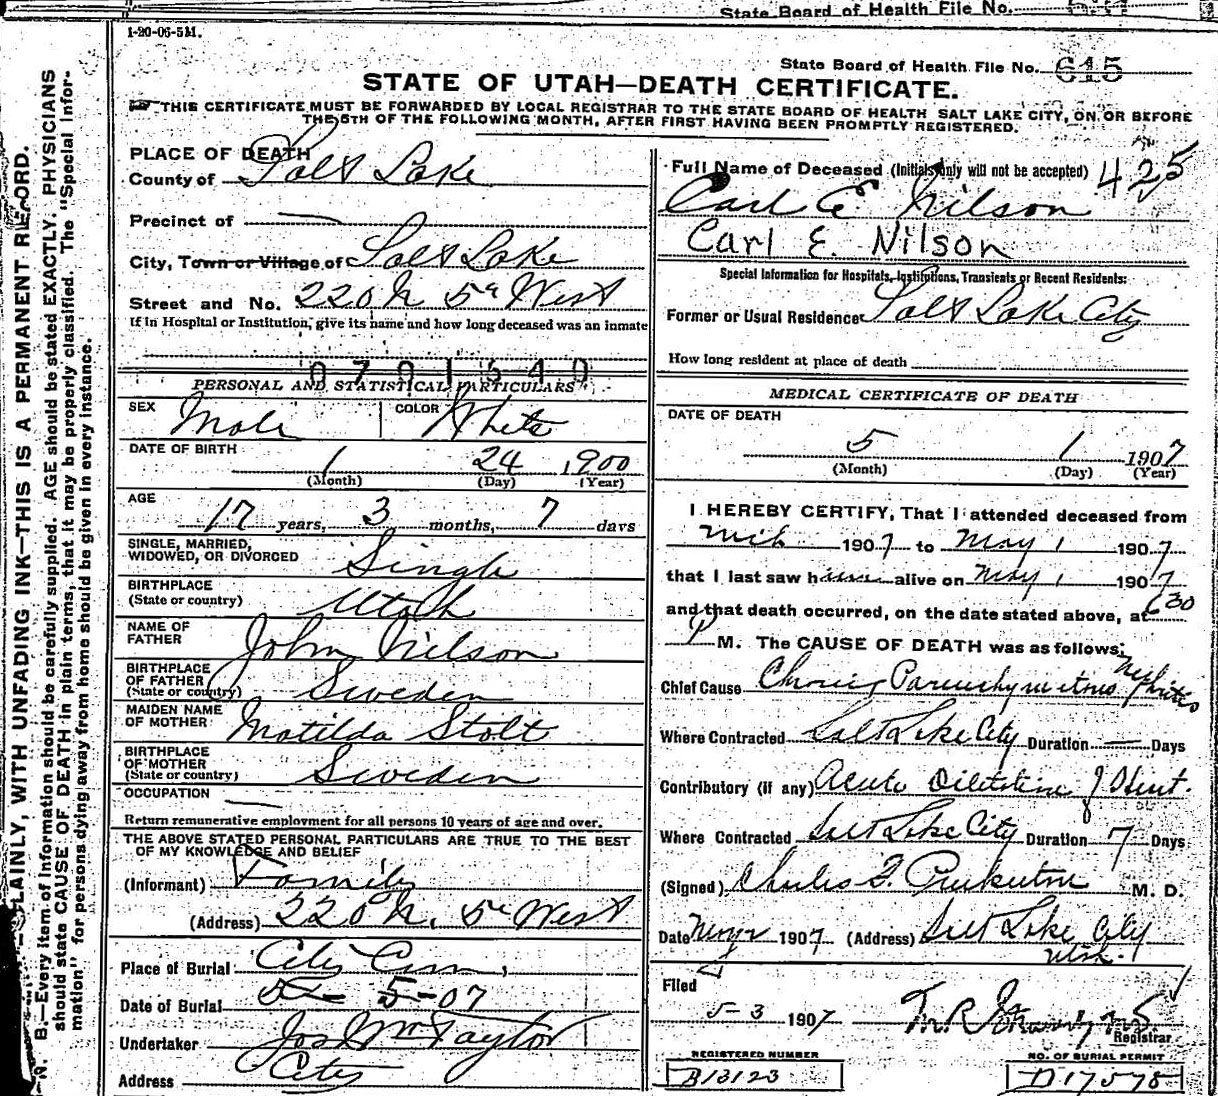 State Board of Health File No.
1-20-06-5M.
State Board of Health File No. 615
STATE OF UTAH—DEATH CERTIFICATE.
THIS CERTIFICATE MUST BE FORWARDED BY LOCAL REGISTRAR TO THE STATE BOARD OF HEALTH SALT LAKE CITY, ON OR BEFORE
THE 5TH OF THE FOLLOWING MONTH, AFTER FIRST HAVING BEEN PROMPTLY REGISTERED.
N. B.—Every item of information should be carefully supplied. AGE should be stated EXACTLY. PHYSICIANS
should state CAUSE OF DEATH in plain terms, that it may be properly classified. The "Special Infor-
mation" for persons dying away from home should be given in every instance.
PLAINLY, WITH UNFADING INK—THIS IS A PERMANENT RECORD.
PLACE OF DEATH
County of Salt Lake
Precinct of —
City, Town or Village of Salt Lake
Street and No. 220 N 5th West
If in Hospital or Institution, give its name and how long deceased was an inmate
0701640
PERSONAL AND STATISTICAL PARTICULARS
SEX Male COLOR White
DATE OF BIRTH
1 24 1900
(Month) (Day) (Year)
AGE
17 years, 3 months, 7 days
SINGLE, MARRIED,
WIDOWED, OR DIVORCED Single
BIRTHPLACE
(State or country) Utah
NAME OF
FATHER John Nilson
BIRTHPLACE
OF FATHER
(State or country) Sweden
MAIDEN NAME
OF MOTHER Matilda Stolt
BIRTHPLACE
OF MOTHER
(State or country) Sweden
OCCUPATION —
Return remunerative employment for all persons 10 years of age and over.
THE ABOVE STATED PERSONAL PARTICULARS ARE TRUE TO THE BEST
OF MY KNOWLEDGE AND BELIEF
(Informant) Family
(Address) 220 N. 5th West
Place of Burial City Cem,
Date of Burial 5-07
Undertaker Jos Wm Taylor
Address City
Full Name of Deceased (Initials only will not be accepted) 425
Carl E Nilson
Carl E. Nilson
Special Information for Hospitals, Institutions, Transients or Recent Residents:
Former or Usual Residence Salt Lake City
How long resident at place of death
MEDICAL CERTIFICATE OF DEATH
DATE OF DEATH
5 1 1907
(Month) (Day) (Year)
I HEREBY CERTIFY, That I attended deceased from
1907 to May 1 1907
that I last saw him alive on May 1 1907
and that death occurred, on the date stated above, at 6 30
P M. The CAUSE OF DEATH was as follows:
Chief Cause Chronic Parenchymatous Nephritis
Where Contracted Salt Lake City Duration — Days
Contributory (if any) Acute Dilatation of Heart.
Where Contracted Salt Lake City Duration 7 Days
(Signed) Charles F. M. D.
Date 1907 (Address) Salt Lake City
Utah.
Filed
5-3 1907
Registrar
REGISTERED NUMBER
B13123
NO. OF BURIAL PERMIT
D17578